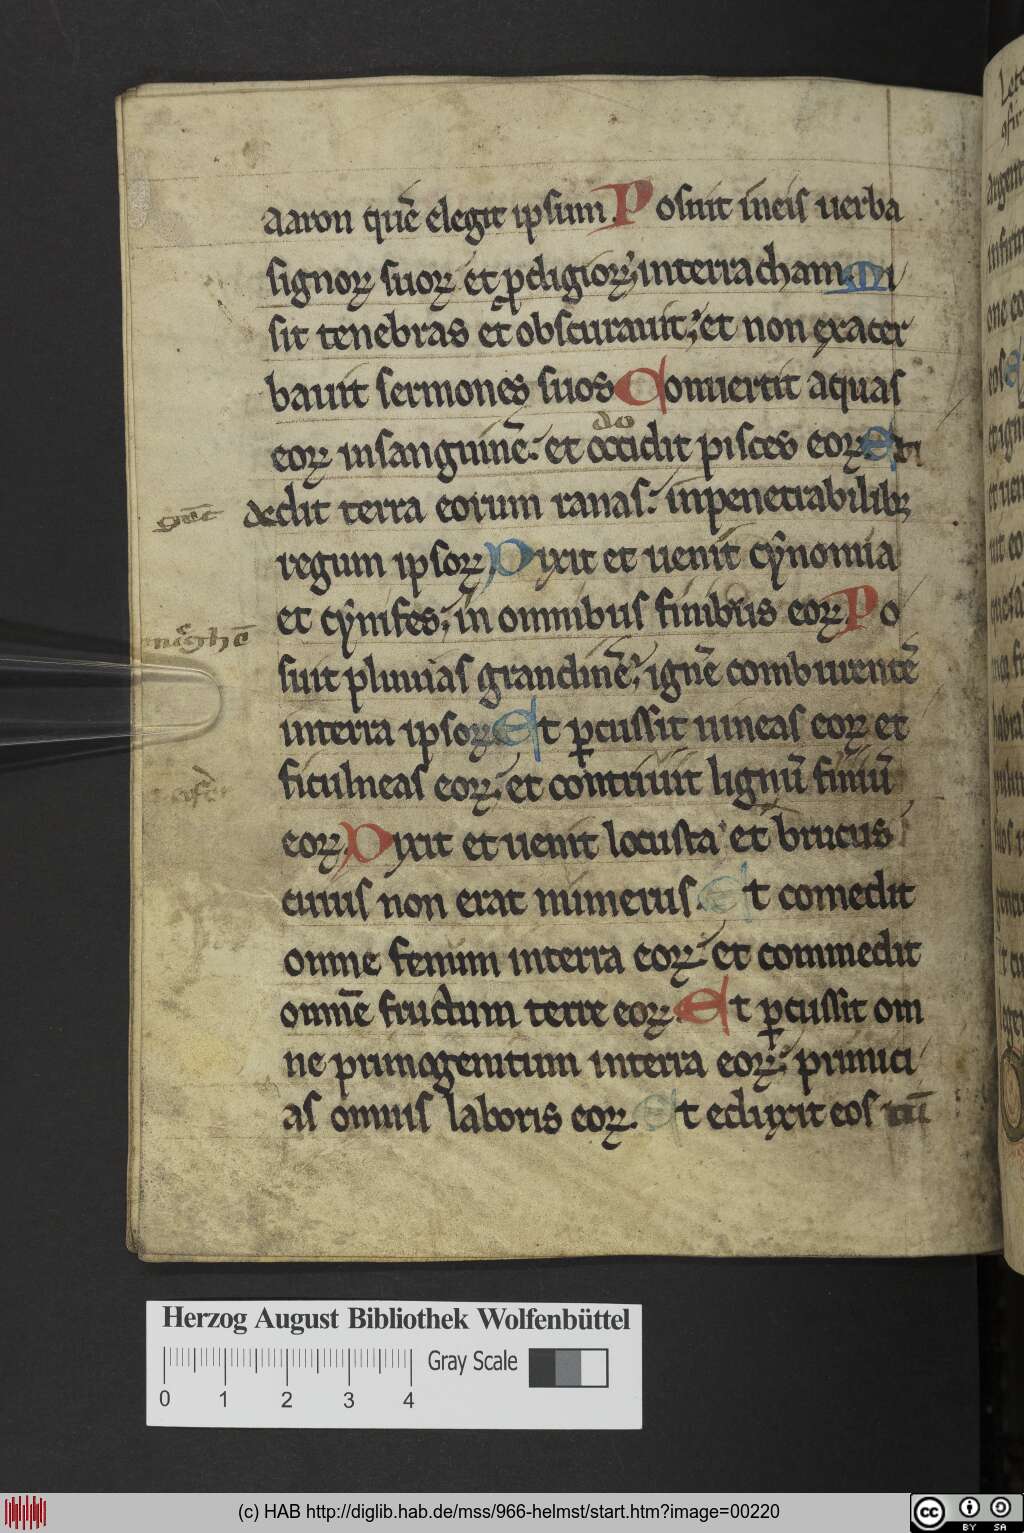 aaron quē elegit ipsum. Posuit in eis uerba
signoꝝ suoꝝ et ꝓdigioꝝ; in terra cham. Mi
sit tenebras et obscurauit; et non exacer
bauit sermones suos Conuertit aquas
do
eoꝝ in sanguinē. et occidit pisces eoꝝ. Edi
dedit terra eorum ranas. in penetrabilibꝫ
regum ipsoꝝ. Dixit et uenit cynomia
et cynifes; in omnibus finibus eoꝝ Po
suit pluuias grandinē; ignē comburentē
in terra ipsoꝝ. Et ꝑcussit uineas eoꝝ et
ficulneas eoꝝ. et contriuit lignū finiū
eoꝝ. Dixit et uenit locusta et brucus
cuius non erat numerus. Et comedit
omne fenum in terra eoꝝ. et commedit
omnē fructum terre eoꝝ. Et ꝑcussit om
ne primogenitum in terra eoꝝ. primici
as omnis laboris eoꝝ. Et eduxit eos cū
Herzog August Bibliothek Wolfenbüttel
Gray Scale
0 1 2 3 4
(c) HAB http://diglib.hab.de/mss/966-helmst/start.htm?image=00220
cc BY SA